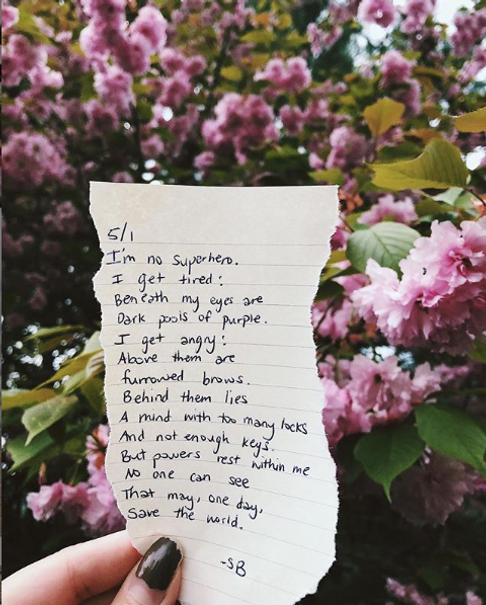 5/1
I'm no superhero.
I get tired:
Beneath my eyes are
Dark pools of purple.
I get angry:
Above them are
furrowed brows.
Behind them lies
A mind with too many locks
And not enough keys.
But powers rest within me
No one can see
That may, one day,
Save the world.
-SB